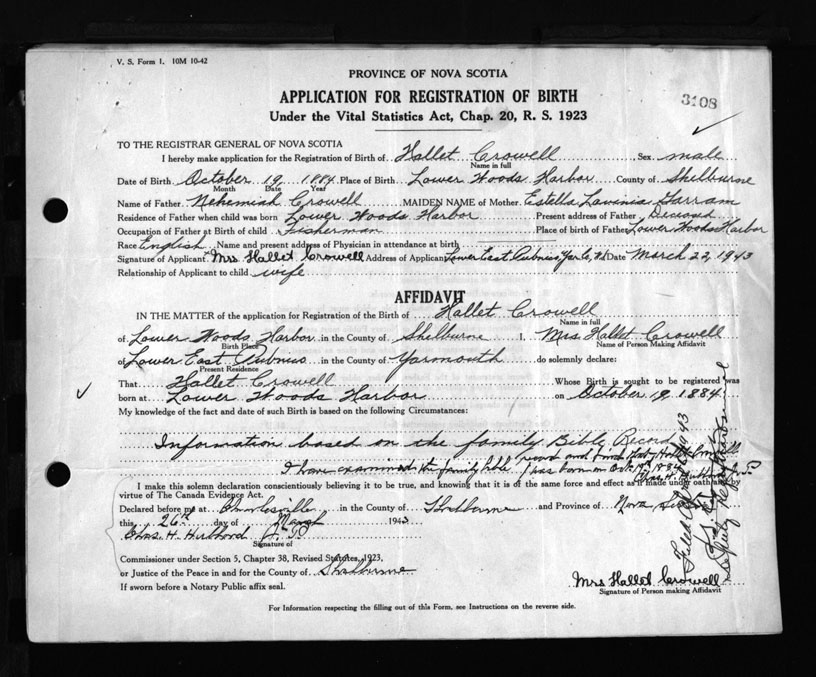 V. S. Form 1. 10M 10-42
PROVINCE OF NOVA SCOTIA
APPLICATION FOR REGISTRATION OF BIRTH
3108
Under the Vital Statistics Act, Chap. 20, R. S. 1923
TO THE REGISTRAR GENERAL OF NOVA SCOTIA
I hereby make application for the Registration of Birth of Hallet Crowell Sex male
Name in full
Date of Birth October 19 1884 Place of Birth Lower Woods Harbor County of Shelburne
Month Date Year
Name of Father Nehemiah Crowell MAIDEN NAME of Mother Estella Lavinia
Residence of Father when child was born Lower Woods Harbor Present address of Father Deceased
Occupation of Father at Birth of child Fisherman Place of birth of Father Lower Woods Harbor
Race English Name and present address of Physician in attendance at birth
Signature of Applicant Mrs Hallet Crowell Address of Applicant Lower East Pubnico Date March 22, 1943
Relationship of Applicant to child wife
AFFIDAVIT
IN THE MATTER of the application for Registration of the Birth of Hallet Crowell
Name in full
of Lower Woods Harbor in the County of Shelburne I, Mrs Hallet Crowell
Birth Place Name of Person Making Affidavit
of Lower East Pubnico in the County of Yarmouth do solemnly declare:
Present Residence
That Hallet Crowell Whose Birth is sought to be registered was
born at Lower Woods Harbor on October 19 1884
My knowledge of the fact and date of such Birth is based on the following Circumstances:
Information based on the family Bible Record
I have examined the family bible record and find that Hallet Crowell
was born on Oct 19th 1884
Chas. H. J.P.
I make this solemn declaration conscientiously believing it to be true, and knowing that it is of the same force and effect as if made under oath and by
virtue of The Canada Evidence Act.
Declared before me at Charlesville in the County of Shelburne and Province of Nova Scotia
this 26th day of March 1943
Chas. H. J. P.
Signature of
Commissioner under Section 5, Chapter 38, Revised Statutes, 1923,
or Justice of the Peace in and for the County of Shelburne
If sworn before a Notary Public affix seal.
Mrs Hallet Crowell
Signature of Person making Affidavit
For Information respecting the filling out of this Form, see Instructions on the reverse side.